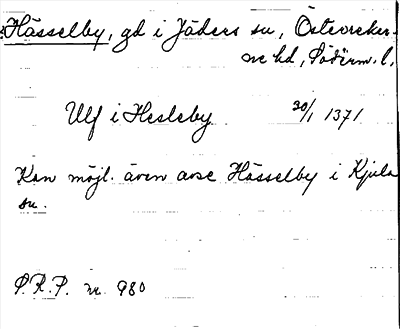 Hässelby, gd i Jäders sn, Österreker-
ne hd, Söderm. l.
Ulf i Hesleby 20/1 1371
Kan möjl. även avse Hässelby i Kjula
sn.
S.R.P. nr. 980